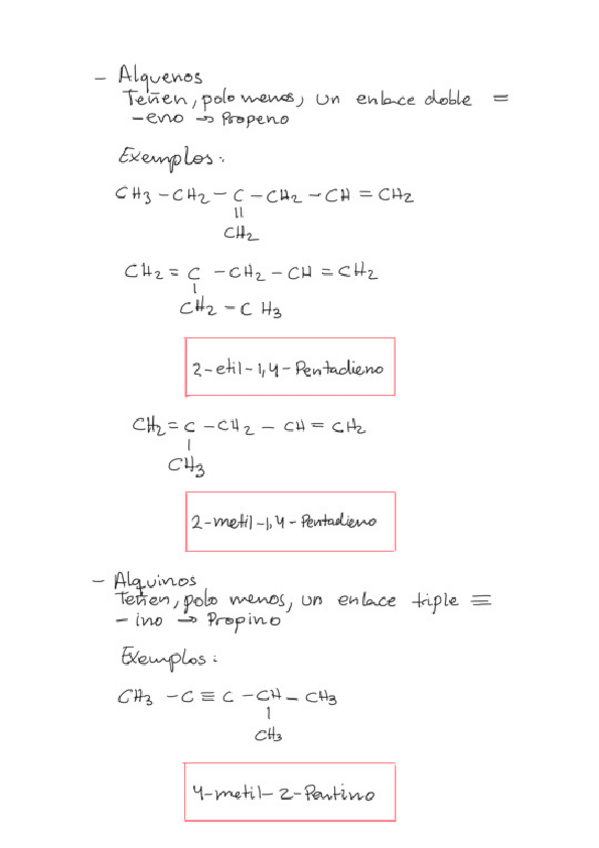 - Alquenos
Teñen, polo menos, un enlace doble =
-eno → Propeno
Exemplos:
CH3 - CH2 - C - CH2 - CH = CH2
||
CH2
CH2 = C - CH2 - CH = CH2
|
CH2 - CH3
2-etil-1,4-Pentadieno
CH2 = C - CH2 - CH = CH2
|
CH3
2-metil-1,4-Pentadieno
- Alquinos
Teñen, polo menos, un enlace triple ≡
- ino → Propino
Exemplos:
CH3 - C ≡ C - CH - CH3
|
CH3
4-metil-2-Pentino